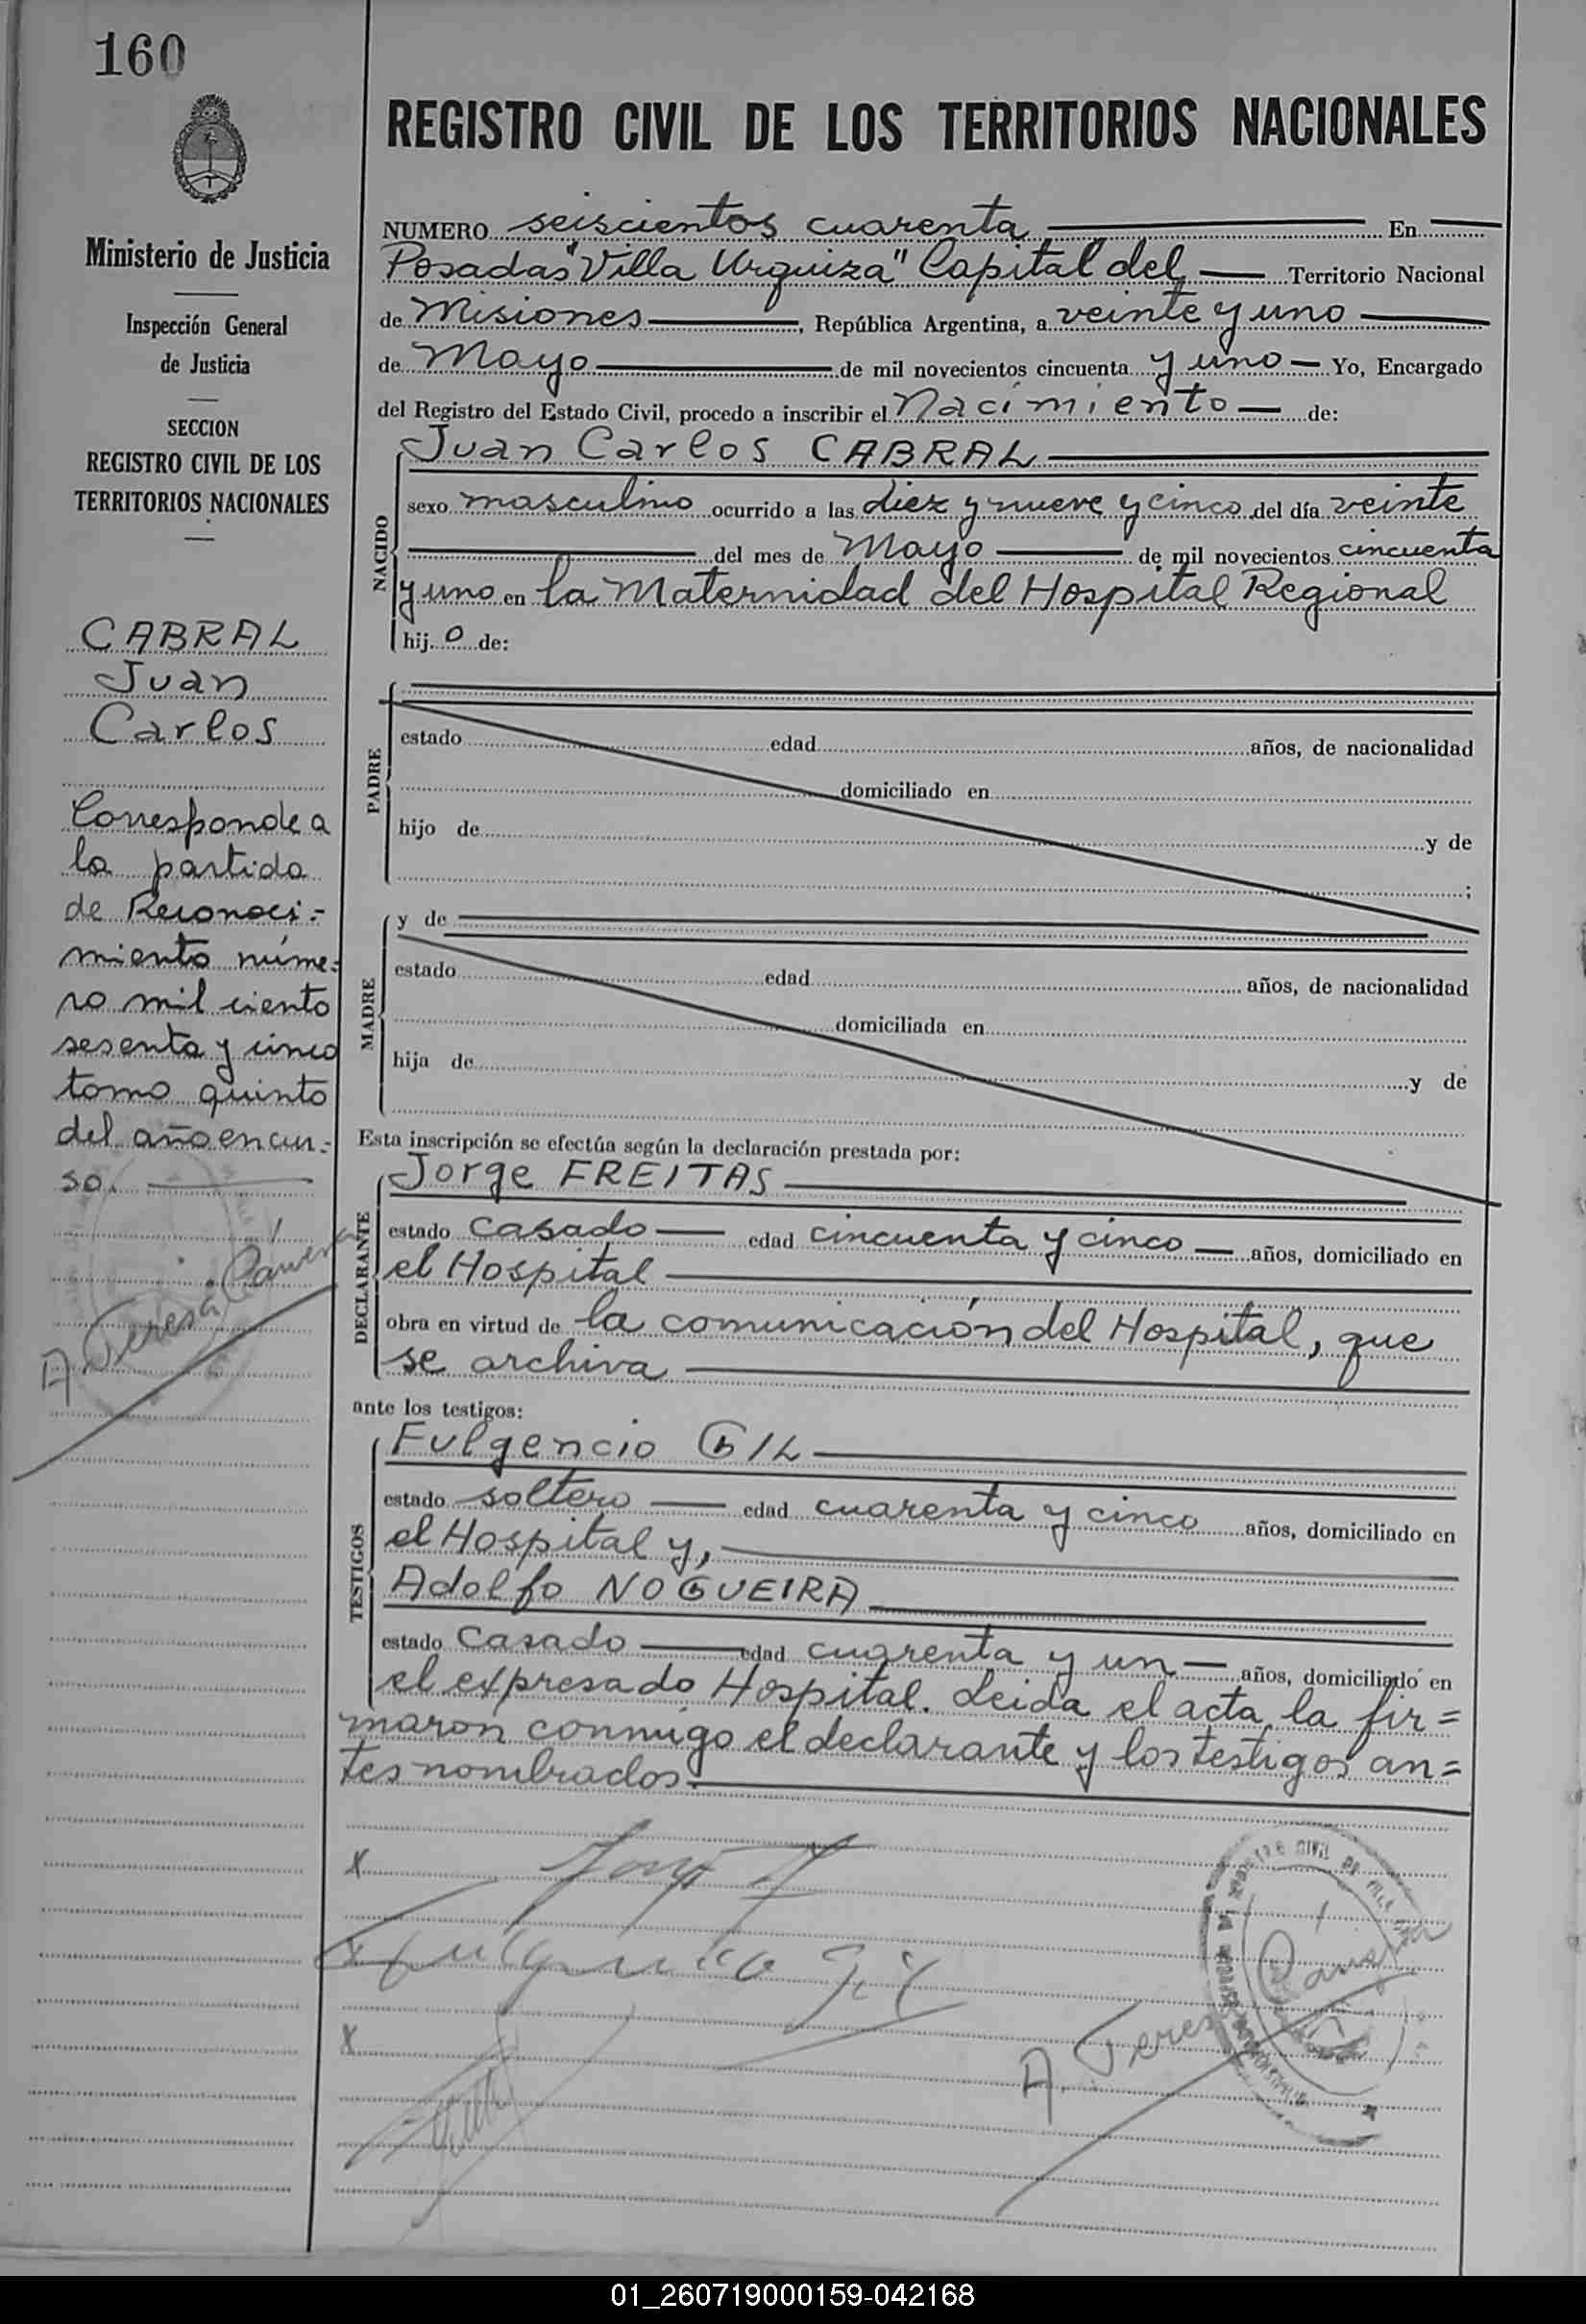 160
Ministerio de Justicia
Inspección General
de Justicia
SECCION
REGISTRO CIVIL DE LOS
TERRITORIOS NACIONALES
CABRAL
Juan
Carlos
Corresponde a
la partida
de Reconoci=
miento núme=
ro mil ciento
sesenta y cinco
tomo quinto
del año en cur=
so.
A. Teresa
REGISTRO CIVIL DE LOS TERRITORIOS NACIONALES
NUMERO seiscientos cuarenta En
Posadas "Villa Urquiza" Capital del Territorio Nacional
de Misiones, República Argentina, a veinte y uno
de Mayo de mil novecientos cincuenta y uno Yo, Encargado
del Registro del Estado Civil, procedo a inscribir el Nacimiento de:
NACIDO
Juan Carlos CABRAL
sexo masculino ocurrido a las diez y nueve y cinco del día veinte
del mes de Mayo de mil novecientos cincuenta
y uno en la Maternidad del Hospital Regional
hij o de:
PADRE
estado edad años, de nacionalidad
domiciliado en
hijo de y de
;
MADRE
y de
estado edad años, de nacionalidad
domiciliada en
hija de y de
Esta inscripción se efectúa según la declaración prestada por:
DECLARANTE
Jorge FREITAS
estado casado edad cincuenta y cinco años, domiciliado en
el Hospital
obra en virtud de la comunicación del Hospital, que
se archiva
ante los testigos:
TESTIGOS
Fulgencio GIL
estado soltero edad cuarenta y cinco años, domiciliado en
el Hospital y,
Adolfo NOGUEIRA
estado casado edad cuarenta y un años, domiciliado en
el expresado Hospital. Leida el acta, la fir=
maron conmigo el declarante y los testigos an=
tes nombrados.
x
x Fulgencio Gil
x
A. Teresa
01_260719000159-042168